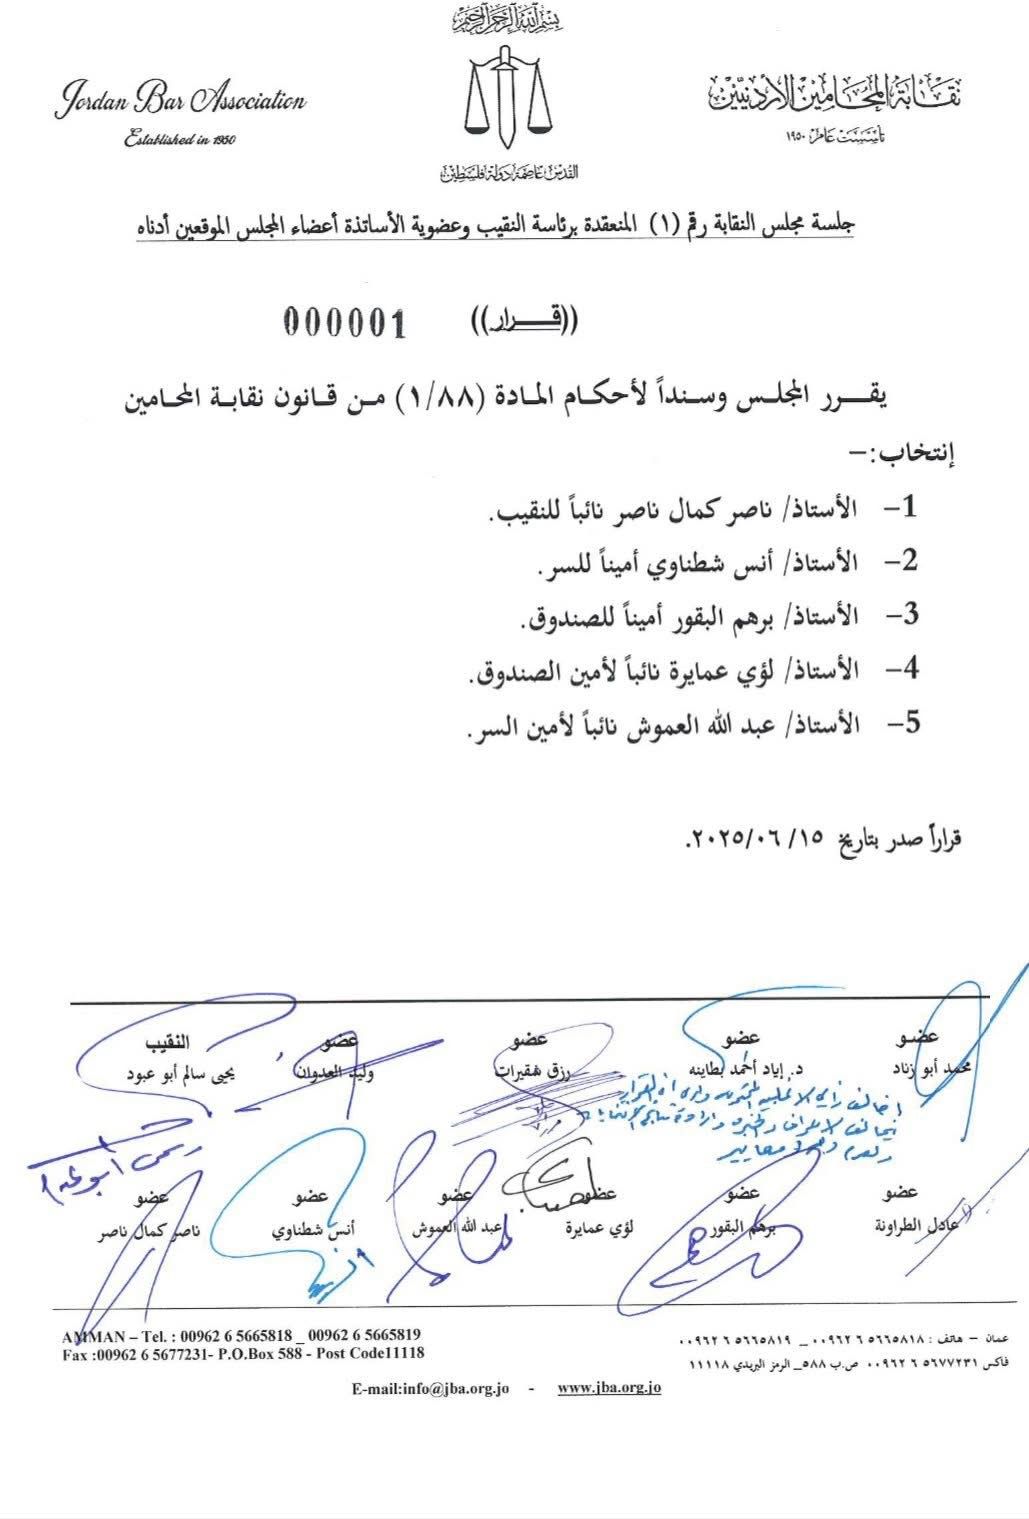 بسم الله الرحمن الرحيم
Jordan Bar Association
Established in 1950
نقابة المحامين الأردنيين
تأسست عام ١٩٥٠
القدس عاصمة دولة فلسطين
جلسة مجلس النقابة رقم (١) المنعقدة برئاسة النقيب وعضوية الأساتذة أعضاء المجلس الموقعين أدناه
((قـــرار)) 000001
يقـــرر المجلـس وسـنداً لأحكـام المـادة (١/٨٨) مـن قـانون نقابـة المحـامين
إنتخاب:-
1- الأستاذ/ ناصر كمال ناصر نائباً للنقيب.
2- الأستاذ/ أنس شطناوي أميناً للسر.
3- الأستاذ/ برهم البقور أميناً للصندوق.
4- الأستاذ/ لؤي عمايرة نائباً لأمين الصندوق.
5- الأستاذ/ عبد الله العموش نائباً لأمين السر.
قراراً صدر بتاريخ ١٥/ ٢٠٢٥/٠٦.
عضو عضو عضو عضو النقيب
محمد أبو زناد د. إياد أحمد بطاينه رزق شقيرات وليد العدوان يحيى سالم أبو عبود
اخالف راي الاغلبية
عضو عضو عضو عضو عضو عضو
عادل الطراونة برهم البقور لؤي عمايرة عبد الله العموش أنس شطناوي ناصر كمال ناصر
AMMAN – Tel. : 00962 6 5665818 _ 00962 6 5665819
Fax :00962 6 5677231- P.O.Box 588 - Post Code11118
عمان – هاتف : ٥٦٦٥٨١٨ ٦ ٠٠٩٦٢ _ ٥٦٦٥٨١٩ ٦ ٠٠٩٦٢
فاكس ٥٦٧٧٢٣١ ٦ ٠٠٩٦٢ ص.ب ٥٨٨_ الرمز البريدي ١١١١٨
E-mail:info@jba.org.jo - www.jba.org.jo